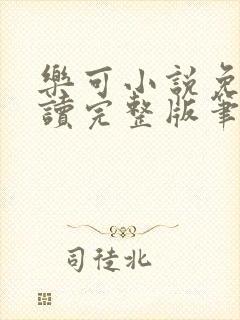 樂可小說免
讀完整版筆
司徒北